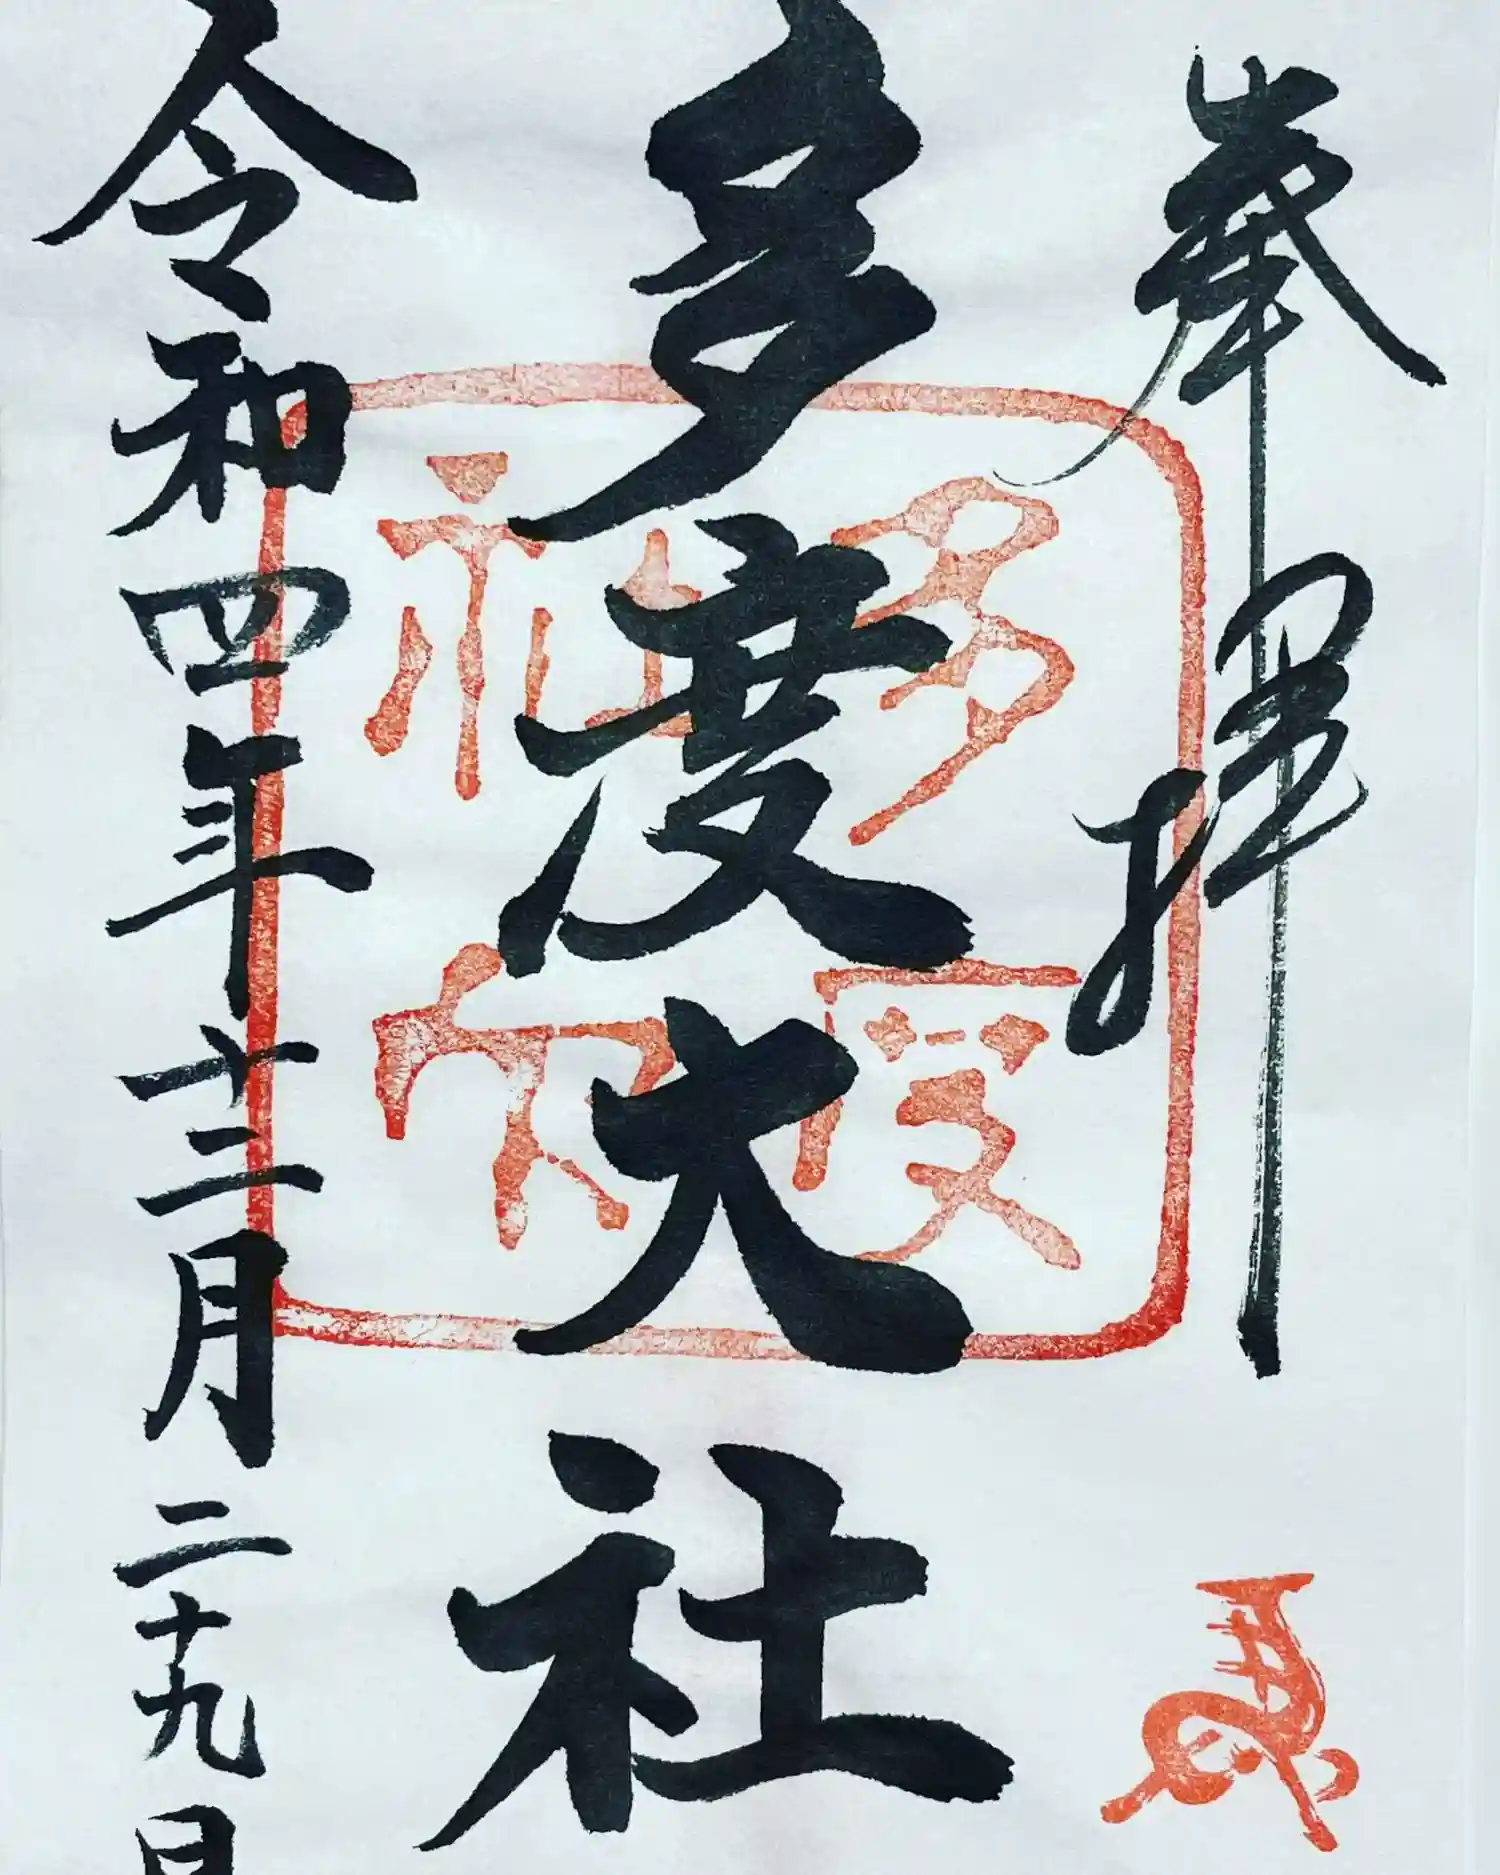 奉拝
多度大社
多度
社印
令和四年十二月二十九日